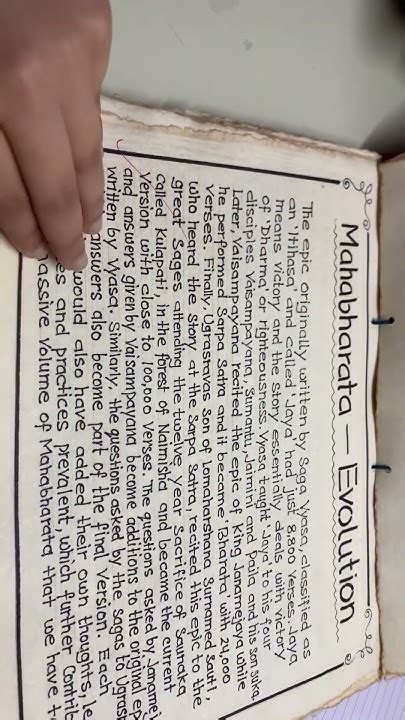 Mahabharata – Evolution
The epic originally written by Saga Vyasa, classified as
an 'Itihasa' and called 'Jaya', had just 8,800 verses. Jaya,
means victory and the story essentially deals with victory
of 'Dharma' or righteousness. Vyasa taught 'Jaya' to his four
disciples Vaisampayana, Sumantu, Jaimini and Paila and his son Suka,
Larer, Vaisampayana recited the epic of king Janamejaya while
he performed Sarpa Satra and it became 'Bharata' with 24,000
Verses. Finally, Ugrasravas Son of Lomcharshana Surnamed Sauti,
who heard the Story at the Sarpa Satra, recited this epic to the
great Sages attending the twelve year Sacrifice of Saunaka
called Kulapati, in the forest of Naimisha and became the current
Version with close to 100,000 Verses. The questions asked by Janamej
and answers given by Vaisampayana become additions to the original ep
written by Vyasa. Similarly, the questions asked by the Sagas to Ugras
answers also become part of the final Version. Each
would also have added their own thoughts, le
es and practices prevalent, which further Contrib
assive volume of Mahabharata that we have t